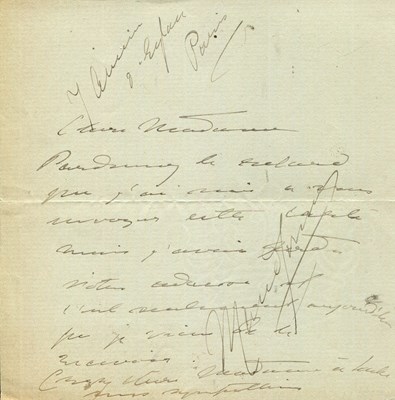 7 Avenue
d'Eylau
Paris
Chère Madame
Pardonnez le retard
que j'ai mis à vous
envoyer cette carte
mais j'avais perdu
votre adresse et
c'est seulement aujourd'hui
que je viens de la
recevoir.
Croyez chère Madame à toutes
mes sympathies